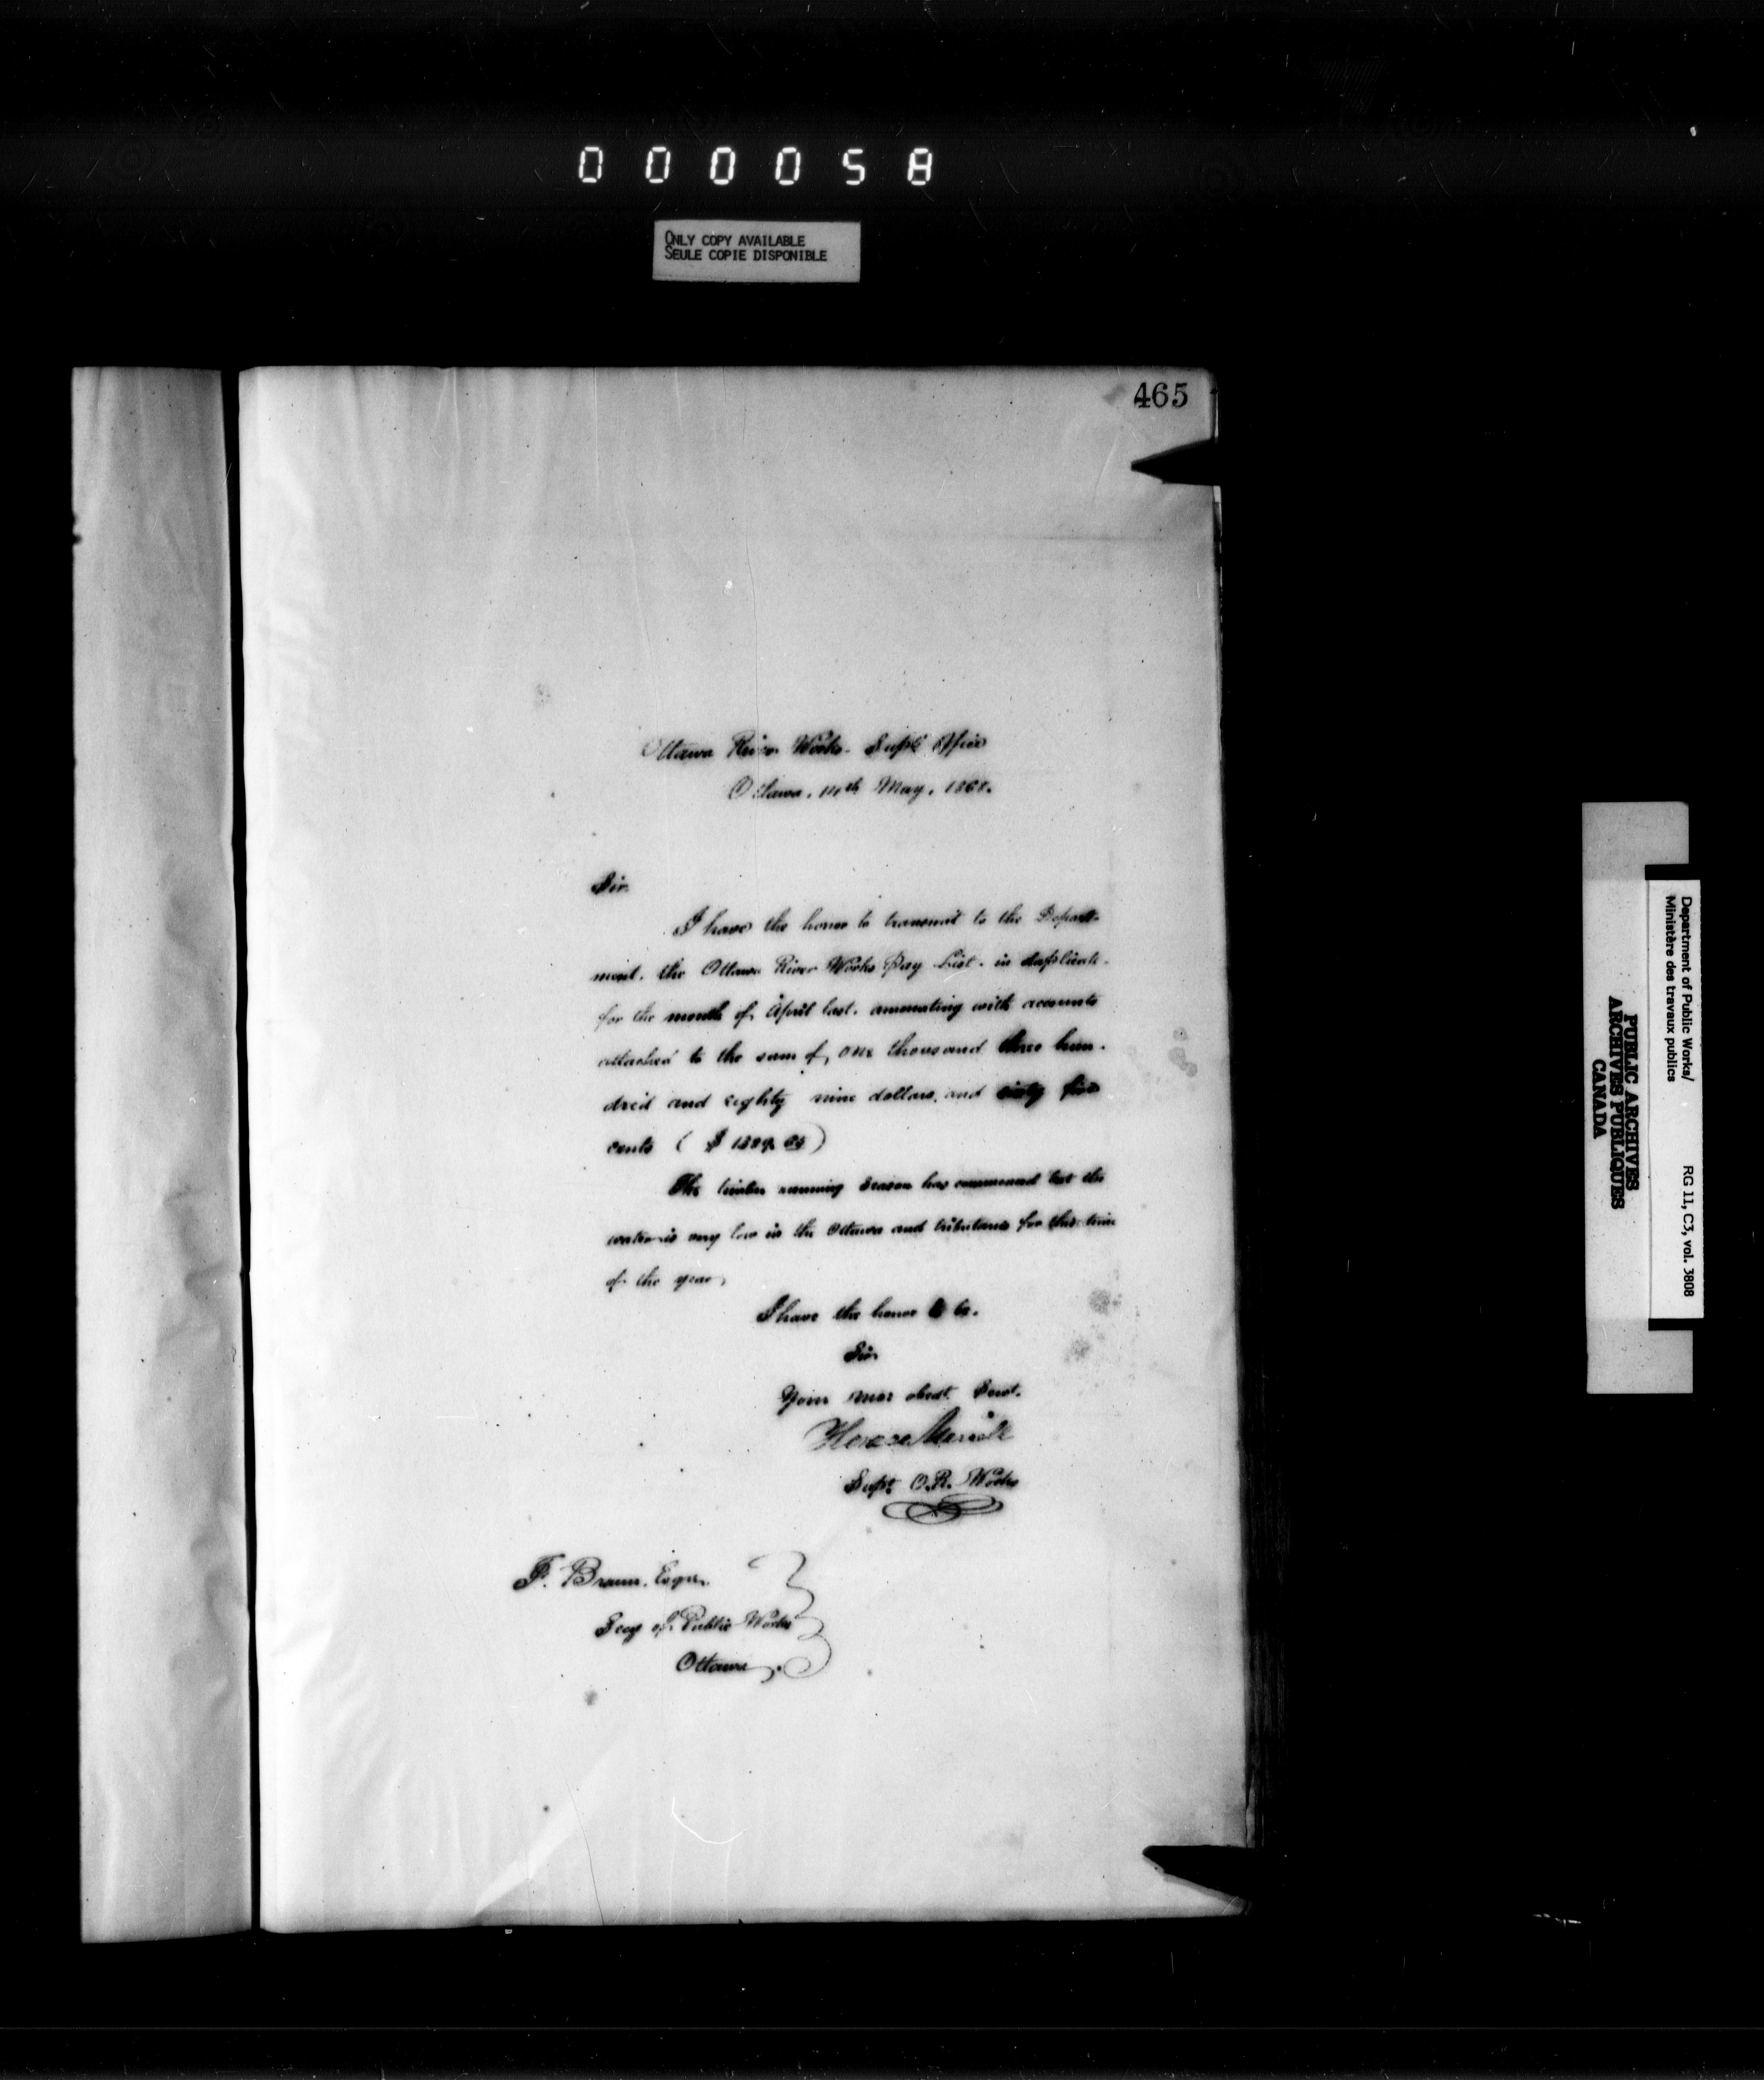 000058
ONLY COPY AVAILABLE
SEULE COPIE DISPONIBLE
465
Ottawa River Works. Supts Office
Ottawa, May, 1868.
Sir.
I have the honor to transmit to the Depart-
ment, the Ottawa River Works Pay List. in duplicate.
for the month of April last. amounting with accounts
attached to the sum of, one thousand three hun-
dred and eighty nine dollars. and sixty five
cents ( $ 1389. 65 )
The timber running season has commenced but the
water is very low in the Ottawa and tributaries for this time
of the year,
I have the honor to be.
Sir
Your obedt. Servt.
Horace Merrill
Supt O.R. Works
F. Braun. Esqre.
Secy of Public Works
Ottawa.
Department of Public Works/
Ministère des travaux publics
RG 11, C3, vol. 3808
PUBLIC ARCHIVES
ARCHIVES PUBLIQUES
CANADA